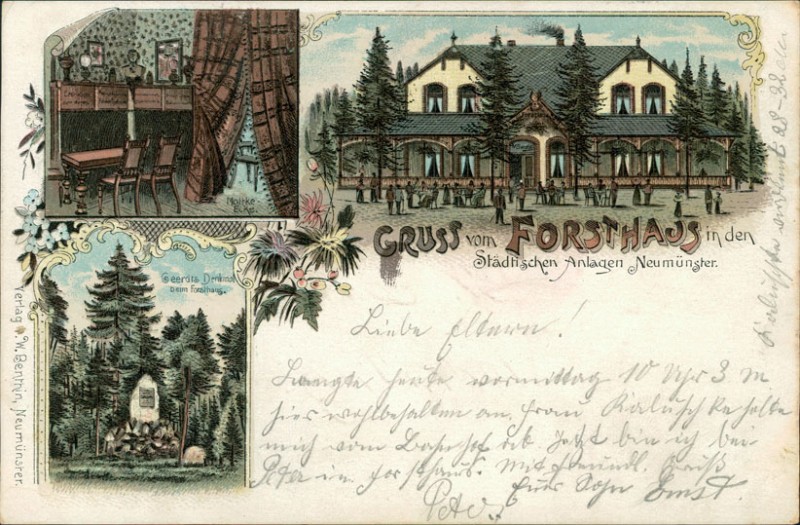 Moltke-
Ecke.
GRUSS vom FORSTHAUS in den
Städtischen Anlagen Neumünster.
Geerdts Denkmal
beim Forsthaus.
Verlag v. W. Benthin, Neumünster.
Liebe Eltern!
Langte heute vormittag 10 Uhr 3 M
hier wohlbehalten an. Frau Kaluschke holte
mich vom Bahnhof ab. Jetzt bin ich bei
Peter im Forsthaus. Mit freundl. Gruß
Euer Sohn Ernst.
Peter.
Kaluschke